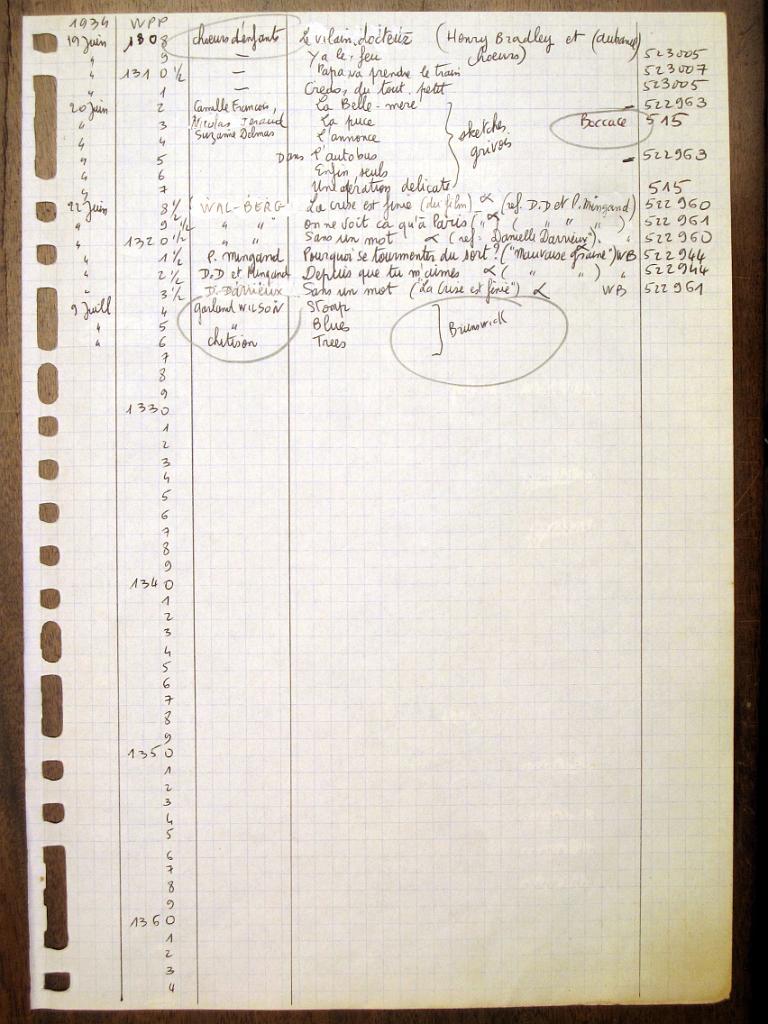 1934 WPP
19 Juin 1308 choeurs d'enfants Le vilain docteur (Henry Bradley et (chœurs)
" 9 — Y a le feu 523005
" 1310 ½ — Papa va prendre le train 523007
" 1 — Credo du tout petit 523005
20 Juin 2 Camille François, La Belle-mère — 522963
" 3 Nicolas La puce Boccace 515
" 4 Suzanne Delmas L'annonce sketches grivois
" 5 Dans l'autobus — 522963
" 6 Enfin seuls
" 7 Une opération délicate 515
22 Juin 8 ½ WAL-BERG La crise est finie (du film) ∝ (ref. D.D et P. Mingand) 522960
" 9 ½ " " on ne voit ça qu'à Paris (" ∝ ( " " " ) 522961
1320 ½ " " Sans un mot ∝ (ref: Danielle Darrieux). " 522960
" 1 ½ P. Mingand Pourquoi se tourmenter du sort? ("Mauvaise graine") WB 522944
" 2 ½ D.D et Mingand Depuis que tu m'aimes ∝ ( " " ) " 522944
" 3 ½ D. Darrieux Sans un mot ("La Crise est finie") ∝ WB 522961
9 Juill 4 garland WILSON Stoap
" 5 " Blues Brunswick
" 6 chitison Trees
7
8
9
1330
1
2
3
4
5
6
7
8
9
1340
1
2
3
4
5
6
7
8
9
1350
1
2
3
4
5
6
7
8
9
1360
1
2
3
4